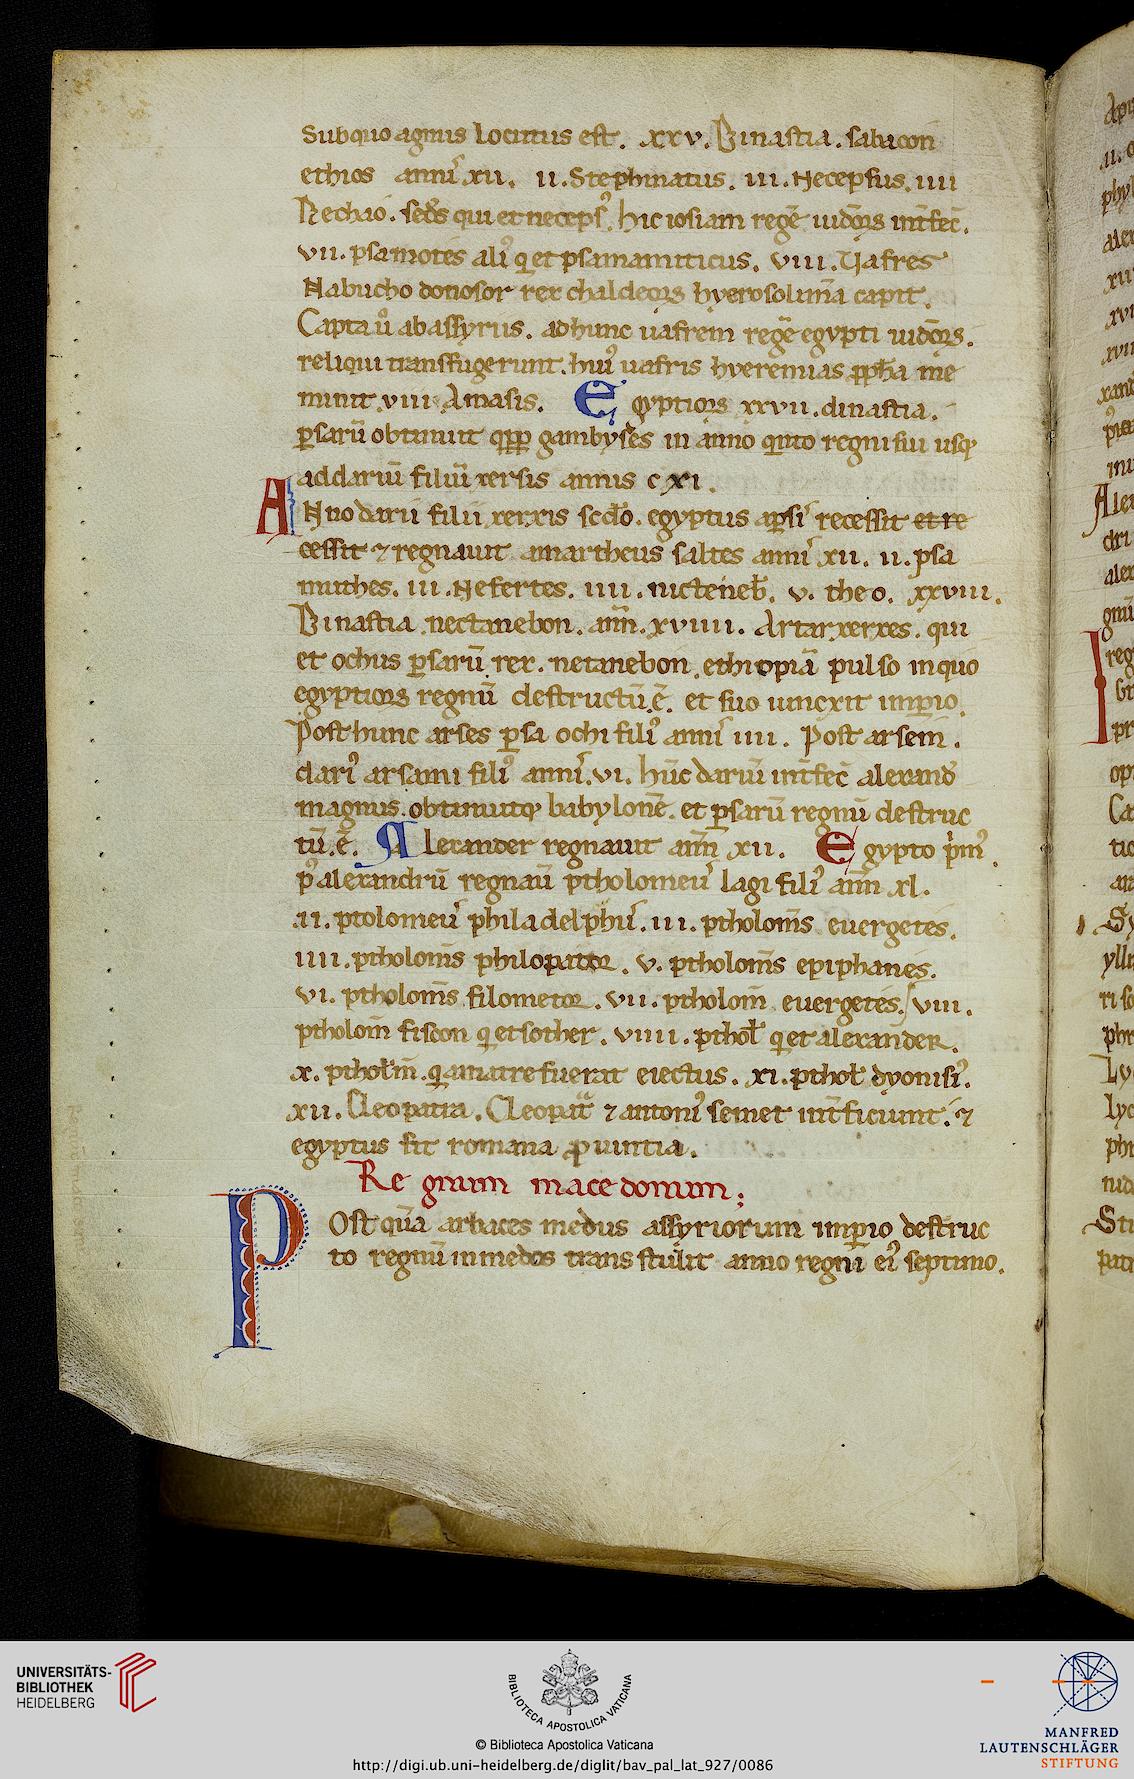 Sub quo agnus locutus est. xxv. Dinastia. sabacon
ethios annĩ xii. ii. Stephinatus. iii. Necepsus. iiii
Nechao. secđs qui et necepsꝰ. hic iosiam regẽ iudeoꝝ int̃fec̃.
vii. psamotes aliꝰ q̃ et psamamiticus. viii. Uafres
Nabucho donosor rex chaldeoꝝ hyerosolima capit.
Capta ũo ab assyriis. ad hunc uafrem regẽ egypti iudeoꝝ.
reliqui transfugerunt. huiꝰ uafris hyeremias ꝓpħa me
minit. viiii Amasis. Egyptioꝝ xxvii. dinastia.
ꝑsarũ obtinuit q̃pp̃ gambyses in anno quinto regni sui usq̃
ad dariũ filiũ xersis annis cxi.
Anno darii filii xerxis sc̃do. egyptus a ꝑsiꝰ recessit et re
cessit ⁊ regnauit amartheus saltes annĩ xii. ii. psa
muthes. iii. Nefertes. iiii. nicteneb̃. v. theo. xxviii.
Dinastia. nectanebon. añn. xviiii. Artarxerxes. qui
et ochus ꝑsarũ rex. netanebon. ethiopiã pulso in quo
egyptioꝝ regnũ destructũ. ẽ. et suo iuncxit imꝑio.
Post hunc arses ꝑsa ochi filiꝰ annĩ iiii. Post arsem.
dariꝰ arsami filiꝰ annĩ. vi. hũc dariũ int̃fec̃ alexand̃
magnus. obtinuitq̃ babylonẽ. et ꝑsarũ regnũ destruc
tũ. ẽ. Alexander regnauit añn xii. Egypto p̃mꝰ
pꝰ alexandrũ regnaũ ptholomeuꝰ lagi filiꝰ añn xl.
ii. ptolomeuꝰ philadelphuꝰ. iii. ptholom̃s euergetes.
iiii. ptholom̃s philopator. v. ptholom̃s epiphanes.
vi. ptholom̃s filometor. vii. ptholom̃ euergetes. viii.
ptholom̃ fiscon q̃ et sother. viiii. pthol̃ q̃ et alexander.
x. pthol̃m̃. q̃ a matre fuerat eiectus. xi. pthol̃ dyonisiꝰ.
xii. Cleopatra. Cleopat̃ ⁊ antoniꝰ semet int̃ficiunt. ⁊
egyptus fit romana ꝓuintia.
Regnum macedonum;
Post quã arbaces medus assyriorum imꝑio destruc
to regnũ in medos transtulit anno regni eiꝰ septimo.
UNIVERSITÄTS-
BIBLIOTHEK
HEIDELBERG
BIBLIOTECA APOSTOLICA VATICANA
© Biblioteca Apostolica Vaticana
http://digi.ub.uni-heidelberg.de/diglit/bav_pal_lat_927/0086
MANFRED
LAUTENSCHLÄGER
STIFTUNG